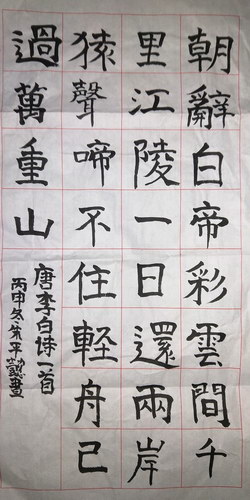 朝辭白帝彩雲間千
里江陵一日還兩岸
猿聲啼不住軽舟已
過萬重山
唐李白诗一首
丙申冬朱平懿書